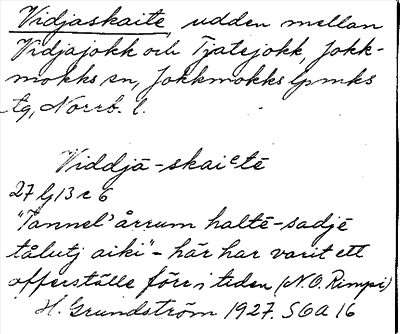 Vidjaskaite, udden mellan
Vidjajokk och Tjatejokk, Jokk-
mokks sn, Jokkmokks lpmks
tg, Norrb. l.
Viddjā-skaietē
27 lj 13 c 6
"Tannel'årrum haltē-sadjē
tålutj aiki" - här har varit ett
offerställe förr i tiden (N.O. Rimpi)
H. Grundström 1927. SOA 16